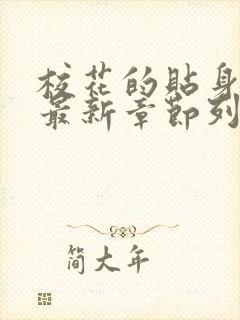 校花的贴身
最新章节列
简大年